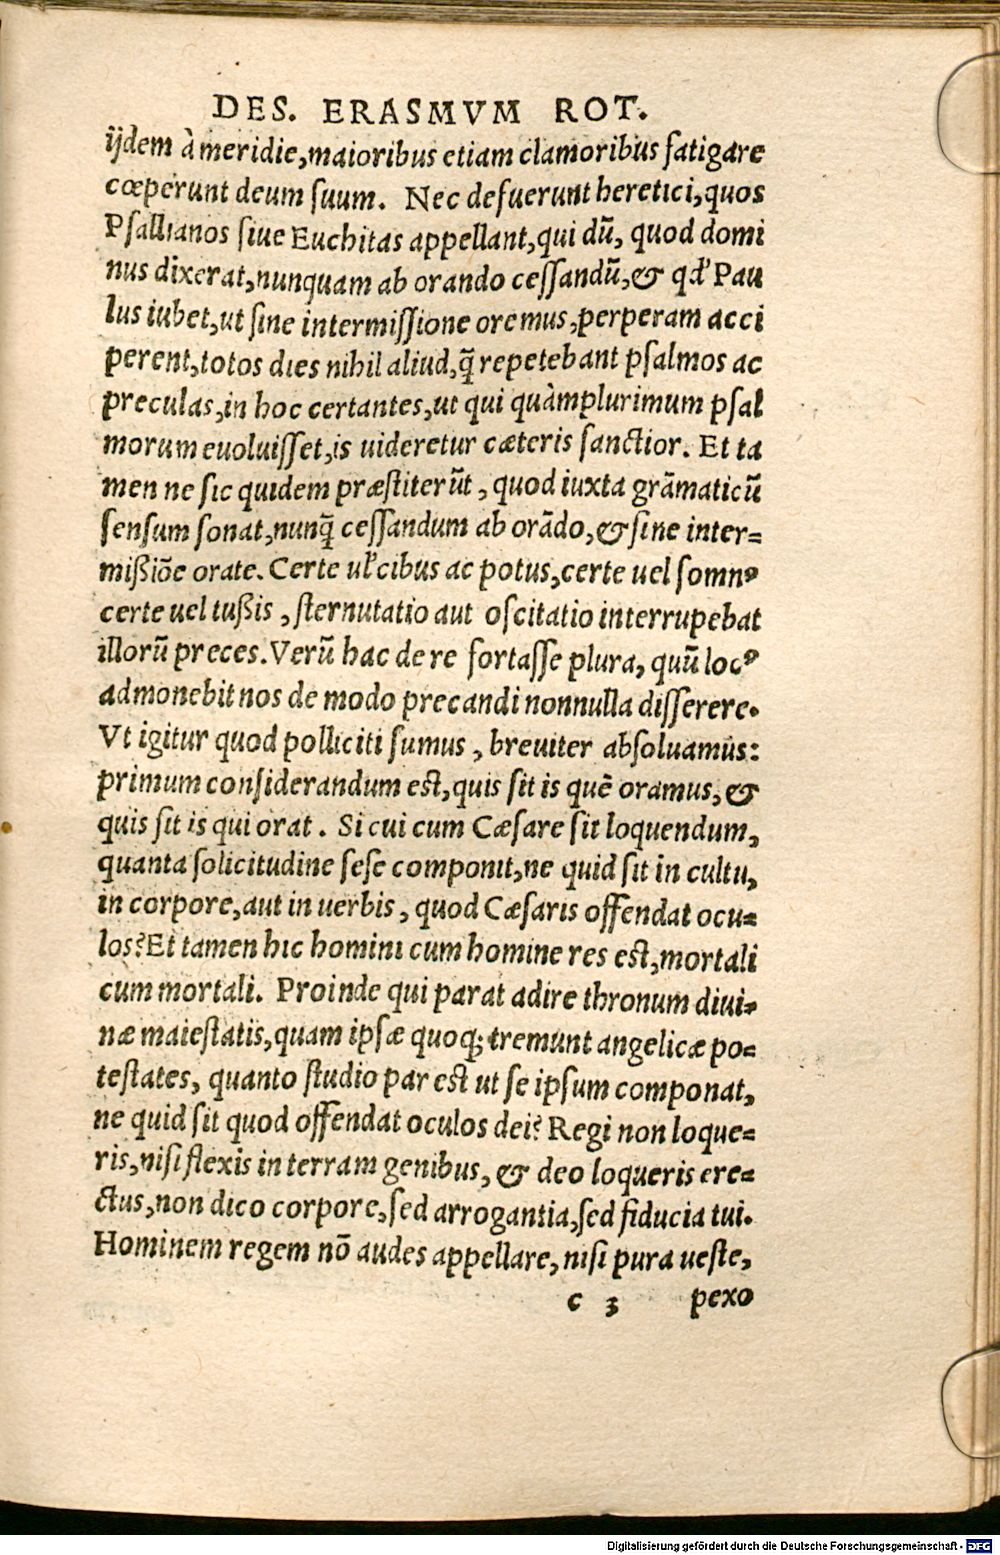 DES. ERASMVM ROT.
ijdem à meridie, maioribus etiam clamoribus fatigare
cœperunt deum suum. Nec defuerunt heretici, quos
Psallianos siue Euchitas appellant, qui dũ, quod domi
nus dixerat, nunquam ab orando cessandũ, & qd' Pau
lus iubet, ut sine intermissione oremus, perperam acci
perent, totos dies nihil aliud, q̃ repetebant psalmos ac
preculas, in hoc certantes, ut qui quàmplurimum psal
morum euoluisset, is uideretur cæteris sanctior. Et ta
men ne sic quidem præstiterũt, quod iuxta grãmaticũ
sensum sonat, nunq̃ cessandum ab orãdo, & sine inter=
mißiõe orate. Certe ul' cibus ac potus, certe uel somnꝰ
certe uel tußis, sternutatio aut oscitatio interrupebat
illorũ preces. Verũ hac de re fortasse plura, quũ locꝰ
admonebit nos de modo precandi nonnulla disserere.
Vt igitur quod polliciti sumus, breuiter absoluamus:
primum considerandum est, quis sit is quẽ oramus, &
quis sit is qui orat. Si cui cum Cæsare sit loquendum,
quanta solicitudine sese componit, ne quid sit in cultu,
in corpore, aut in uerbis, quod Cæsaris offendat ocu=
los? Et tamen hic homini cum homine res est, mortali
cum mortali. Proinde qui parat adire thronum diui=
næ maiestatis, quam ipsæ quoq; tremunt angelicæ po=
testates, quanto studio par est ut se ipsum componat,
ne quid sit quod offendat oculos dei? Regi non loque=
ris, nisi flexis in terram genibus, & deo loqueris ere=
ctus, non dico corpore, sed arrogantia, sed fiducia tui.
Hominem regem nõ audes appellare, nisi pura ueste,
c 3 pexo
Digitalisierung gefördert durch die Deutsche Forschungsgemeinschaft - DFG